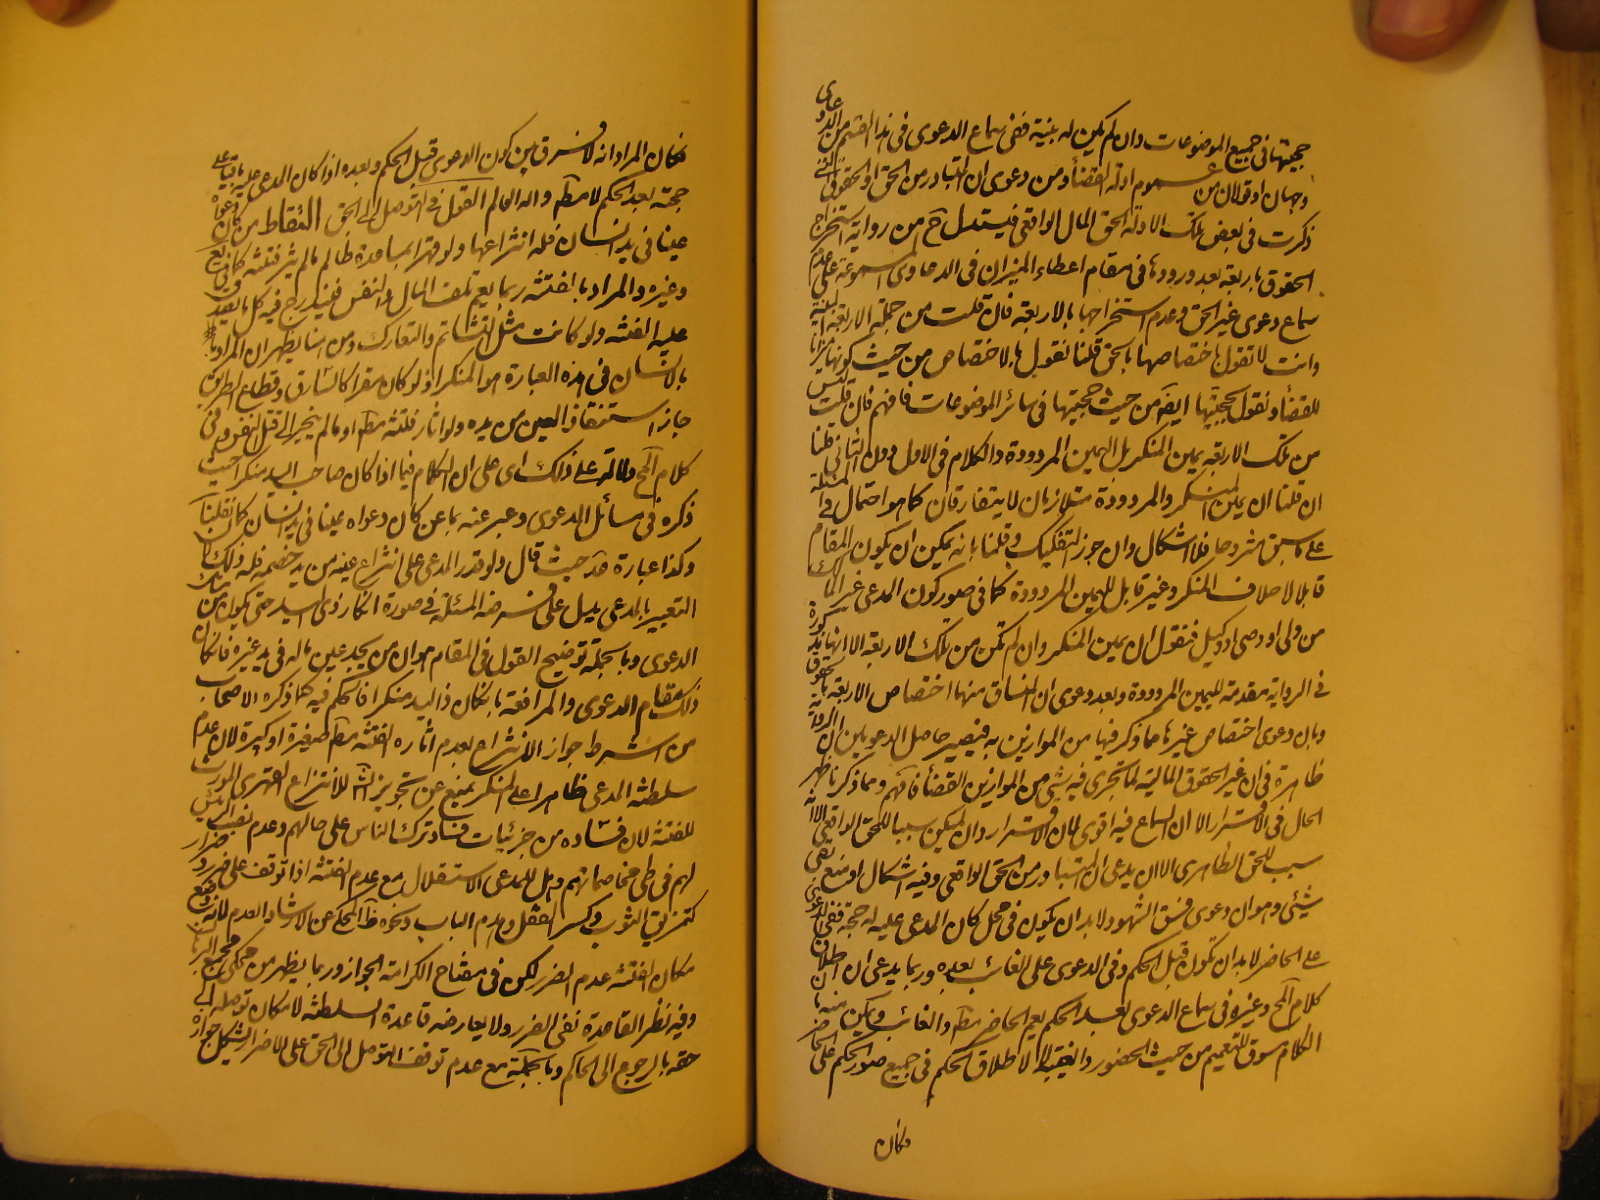 حجيتها في جميع الموضوعات وان لم يكن له بينة ففي سماع الدعوى في هذا القسم من الدعاوى
وجهان او قولان من عموم ادلة القضاء ومن دعوى ان المتبادر من الحق او الحقوق التي
ذكرت في بعض تلك الادلة الحق المال الواقعي فيستدل ح من رواية استخراج
الحقوق باربعة بعد ورودها في مقام اعطاء الميزان في الدعاوى المسموعة على عدم
سماع دعوى غير الحق وعدم استخراجها بالاربعة فان قلت من جملة الاربعة البينة
وانت لا تقول باختصاصها بالحق قلنا نقول بالاختصاص من حيث كونها ميزانا
للقضاء ونقول بحجيتها ايضا من حيث حجيتها في سائر الموضوعات فافهم فان قلت ليس
من تلك الاربعة يمين المنكر بل اليمين المردودة والكلام في الاول دون الثاني قلنا
ان قلنا ان يمين المنكر والمردودة متلازمان لا يتفارقان كما هو احتمال في المسئلة
على ما سبق مشروحا فلا اشكال وان جوز التفكيك وقلنا بانه يمكن ان يكون المقام
قابلا لاحلاف المنكر وغير قابل لليمين المردودة كما في صور كون المدعى غير المالك
من ولى او وصى او وكيل فنقول ان يمين المنكر وان لم تكن من تلك الاربعة الا انها مذكورة
في الرواية مقدمة لليمين المردودة وبعد دعوى ان المنساق منها اختصاص الاربعة بالحقوق
وبان دعوى اختصاص غيرها مما ذكر فيها من الموازين به فيصير حاصل الدعويين ان الرواية
ظاهرة في ان غير الحقوق المالية لا تجرى فيه شيء من الموازين القضاء فافهم ومما ذكرنا ظهر
الحال في الاقرار الا ان السماع فيه اقوى لان الاقرار وان لم يكن سببا للحق الواقعي الا انه
سبب للحق الظاهرى الا ان يدعى ان المتبادر من الحق الواقعي وفيه اشكال او منع بقى
شيئى وهو ان دعوى فسق الشهود لا بد ان يكون في محل كان المدعى عليه له حجة ففي الدعوى
على الحاضر لا بد ان تكون قبل الحكم وفي الدعوى على الغائب بعده وربما يدعى ان اطلاق
كلام المح وغيره في سماع الدعوى بعد الحكم يعم الحاضر مطلقا والغائب ويمكن منعه بان
الكلام مسوق للتعميم من حيث الحضور والغيبة لا لاطلاق الحكم في جميع صور الحكم على الحاضر
فكان
فكان المراد انه لا فرق بين كون الدعوى قبل الحكم وبعده اذا كان المدعى عليه باقيا على
حجته بعد الحكم لا مطلقا والله العالم القول في التوصل الى الحق التقاط من كان دعواه
عينا في يد انسان فله انتزاعها ولو قهرا بمساعدة ظالم ما لم يثر فتنة كما في يع
وغيره والمراد بالفتنة ربما يعم تلف المال والنفس فيندرج فيه كل ما يصدق
عليه الفتنة ولو كانت مثل التشاتم والتعارك ومن هنا يظهر ان المراد
بالانسان في هذه العبارة هو المنكر اذ لو كان مقرا كالسارق وقطاع الطريق
جاز استنقاذ العين من يده ولو اثار فتنة مطلقا او ما لم ينجر الى قتل النفس وفي
كلام المح دلالة على ذلك اى على ان الكلام فيما اذا كان صاحب اليد منكرا حيث
ذكره في مسائل الدعوى وعبر عنه بما عن كان دعواه عينا في يد انسان كما نقلنا
وكذا عبارة عد حيث قال ولو قدر المدعى على انتزاع عينه من يد خصمه فله ذلك
التعبير بالمدعى يدل على فرض المسئلة في صورة انكار ذى اليد حتى يكون من
الدعوى وبالجملة توضيح القول في المقام هو ان من يجد عين ماله في يد غيره فان كان
ذلك مقام الدعوى والمرافعة بان كان ذا اليد منكرا فالحكم فيه كما ذكره الاصحاب
من اشتراط جواز الانتزاع بعدم اثاره الفتنة مطلقا صغيرة او كبيرة لان عدم
سلطنة المدعى ظاهرا على المنكر يمنع عن تجويز الش للانتزاع القهرى المورث
للفتنة لان فساده من جزئيات فساد ترك الناس على حالهم وعدم نصب رئيس
لهم في طى مخاصماتهم وهل للمدعى الاستقلال مع عدم الفتنة اذا توقف على ضرر
كتمزيق الثوب وكسر القفل وهدم الباب ونحوه
مكان الفتنة عدم الضرر لكن في مفتاح الكرامة الجواز وربما يظهر من محكى مجمع البرهان
وفيه نظر لقاعدة نفى الضرر ولا يعارضه قاعدة السلطنة لامكان توصله الى
حقه بالرجوع الى الحاكم وبالجملة مع عدم توقف التوصل الى الحق على الاضرار يشكل جوازه